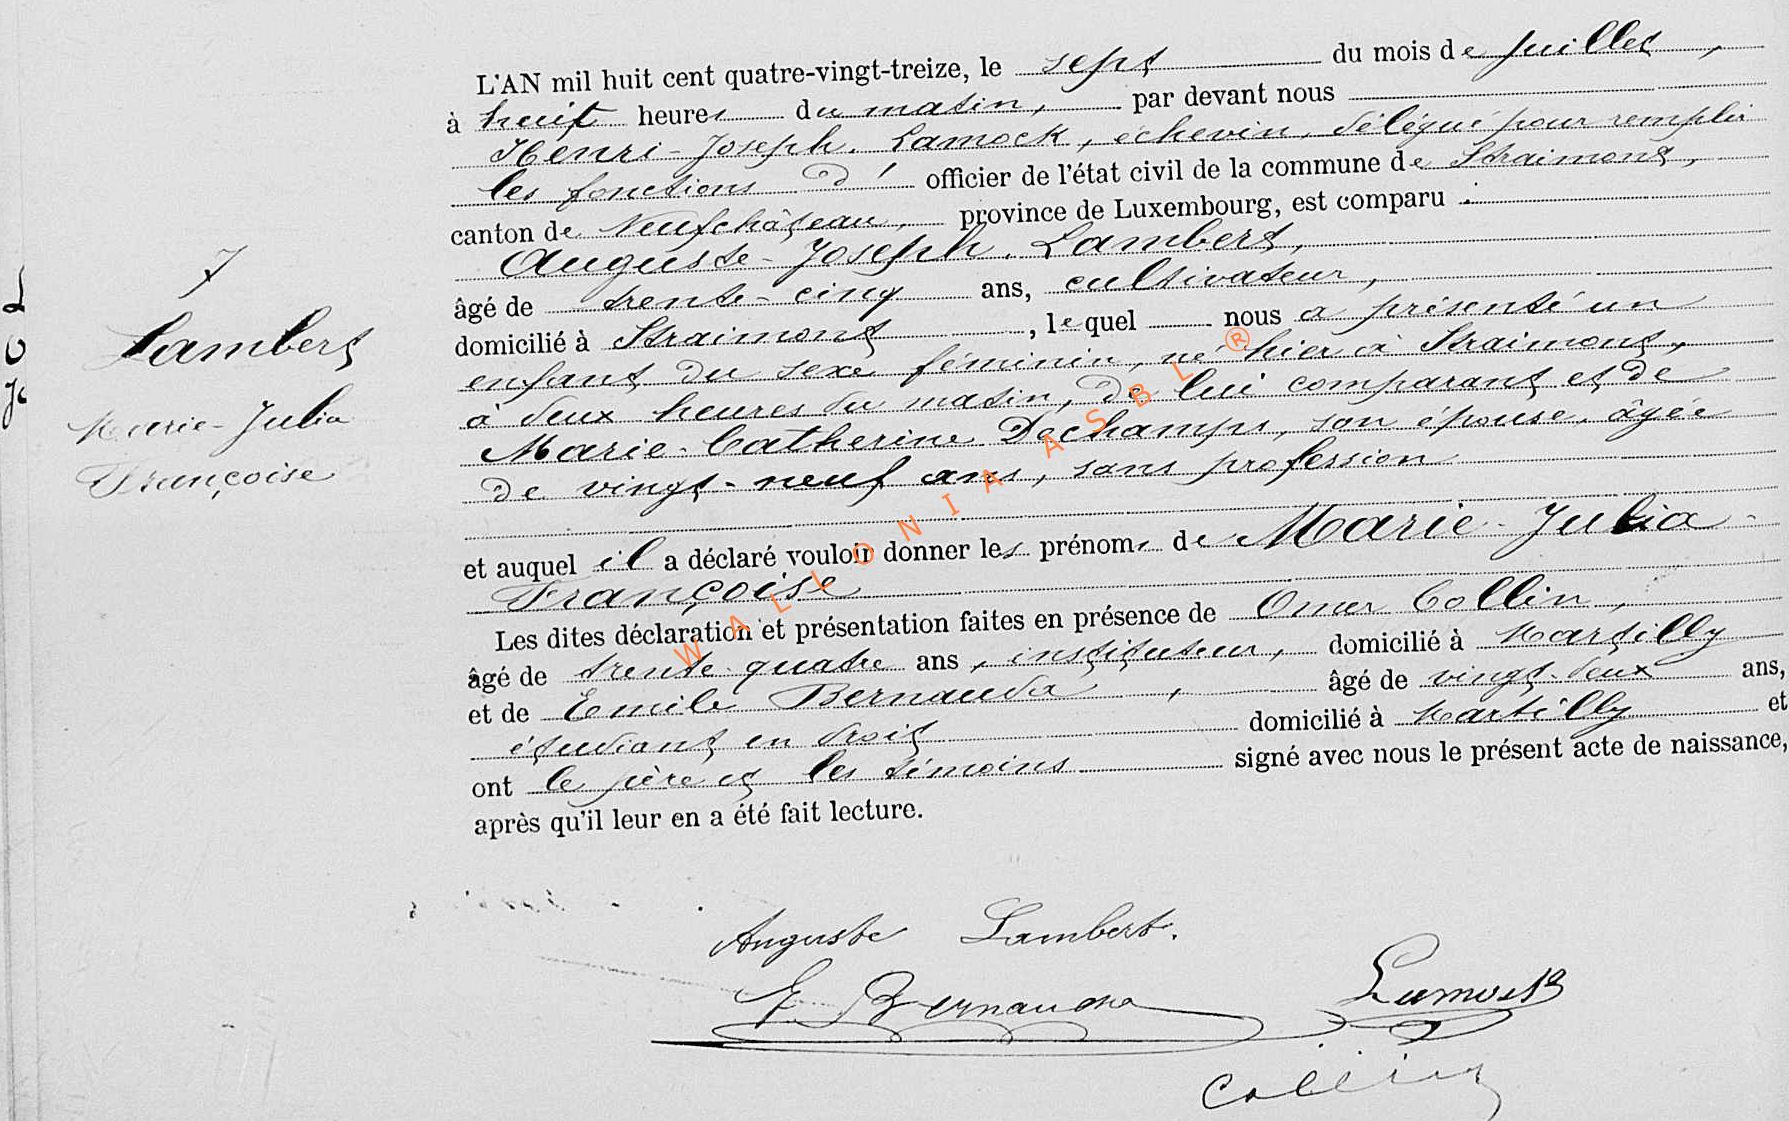 7
Lambert
Marie-Julia
Françoise
L'AN mil huit cent quatre-vingt-treize, le sept du mois de juillet,
à huit heures du matin, par devant nous
Henri-Joseph Lamock, échevin, délégué pour remplir
les fonctions d' officier de l'état civil de la commune de Straimont,
canton de Neufchâteau, province de Luxembourg, est comparu :
Auguste-Joseph Lambert,
âgé de trente-cinq ans, cultivateur,
domicilié à Straimont, lequel nous a présenté un
enfant du sexe féminin, né hier à Straimont,
à deux heures du matin, de lui comparant et de
Marie-Catherine Dechamps, son épouse, âgée
de vingt-neuf ans, sans profession
et auquel il a déclaré vouloir donner les prénoms de Marie-Julia-
Françoise
Les dites déclaration et présentation faites en présence de Omer Collin,
âgé de trente-quatre ans, instituteur, domicilié à Martilly
et de Emile Bernauda, âgé de vingt-deux ans,
étudiant en droit domicilié à Martilly et
ont le père et les témoins signé avec nous le présent acte de naissance,
après qu'il leur en a été fait lecture.
Auguste Lambert.
E. Bernauda
Lamock
Collin
WALLONIA ASBL ®